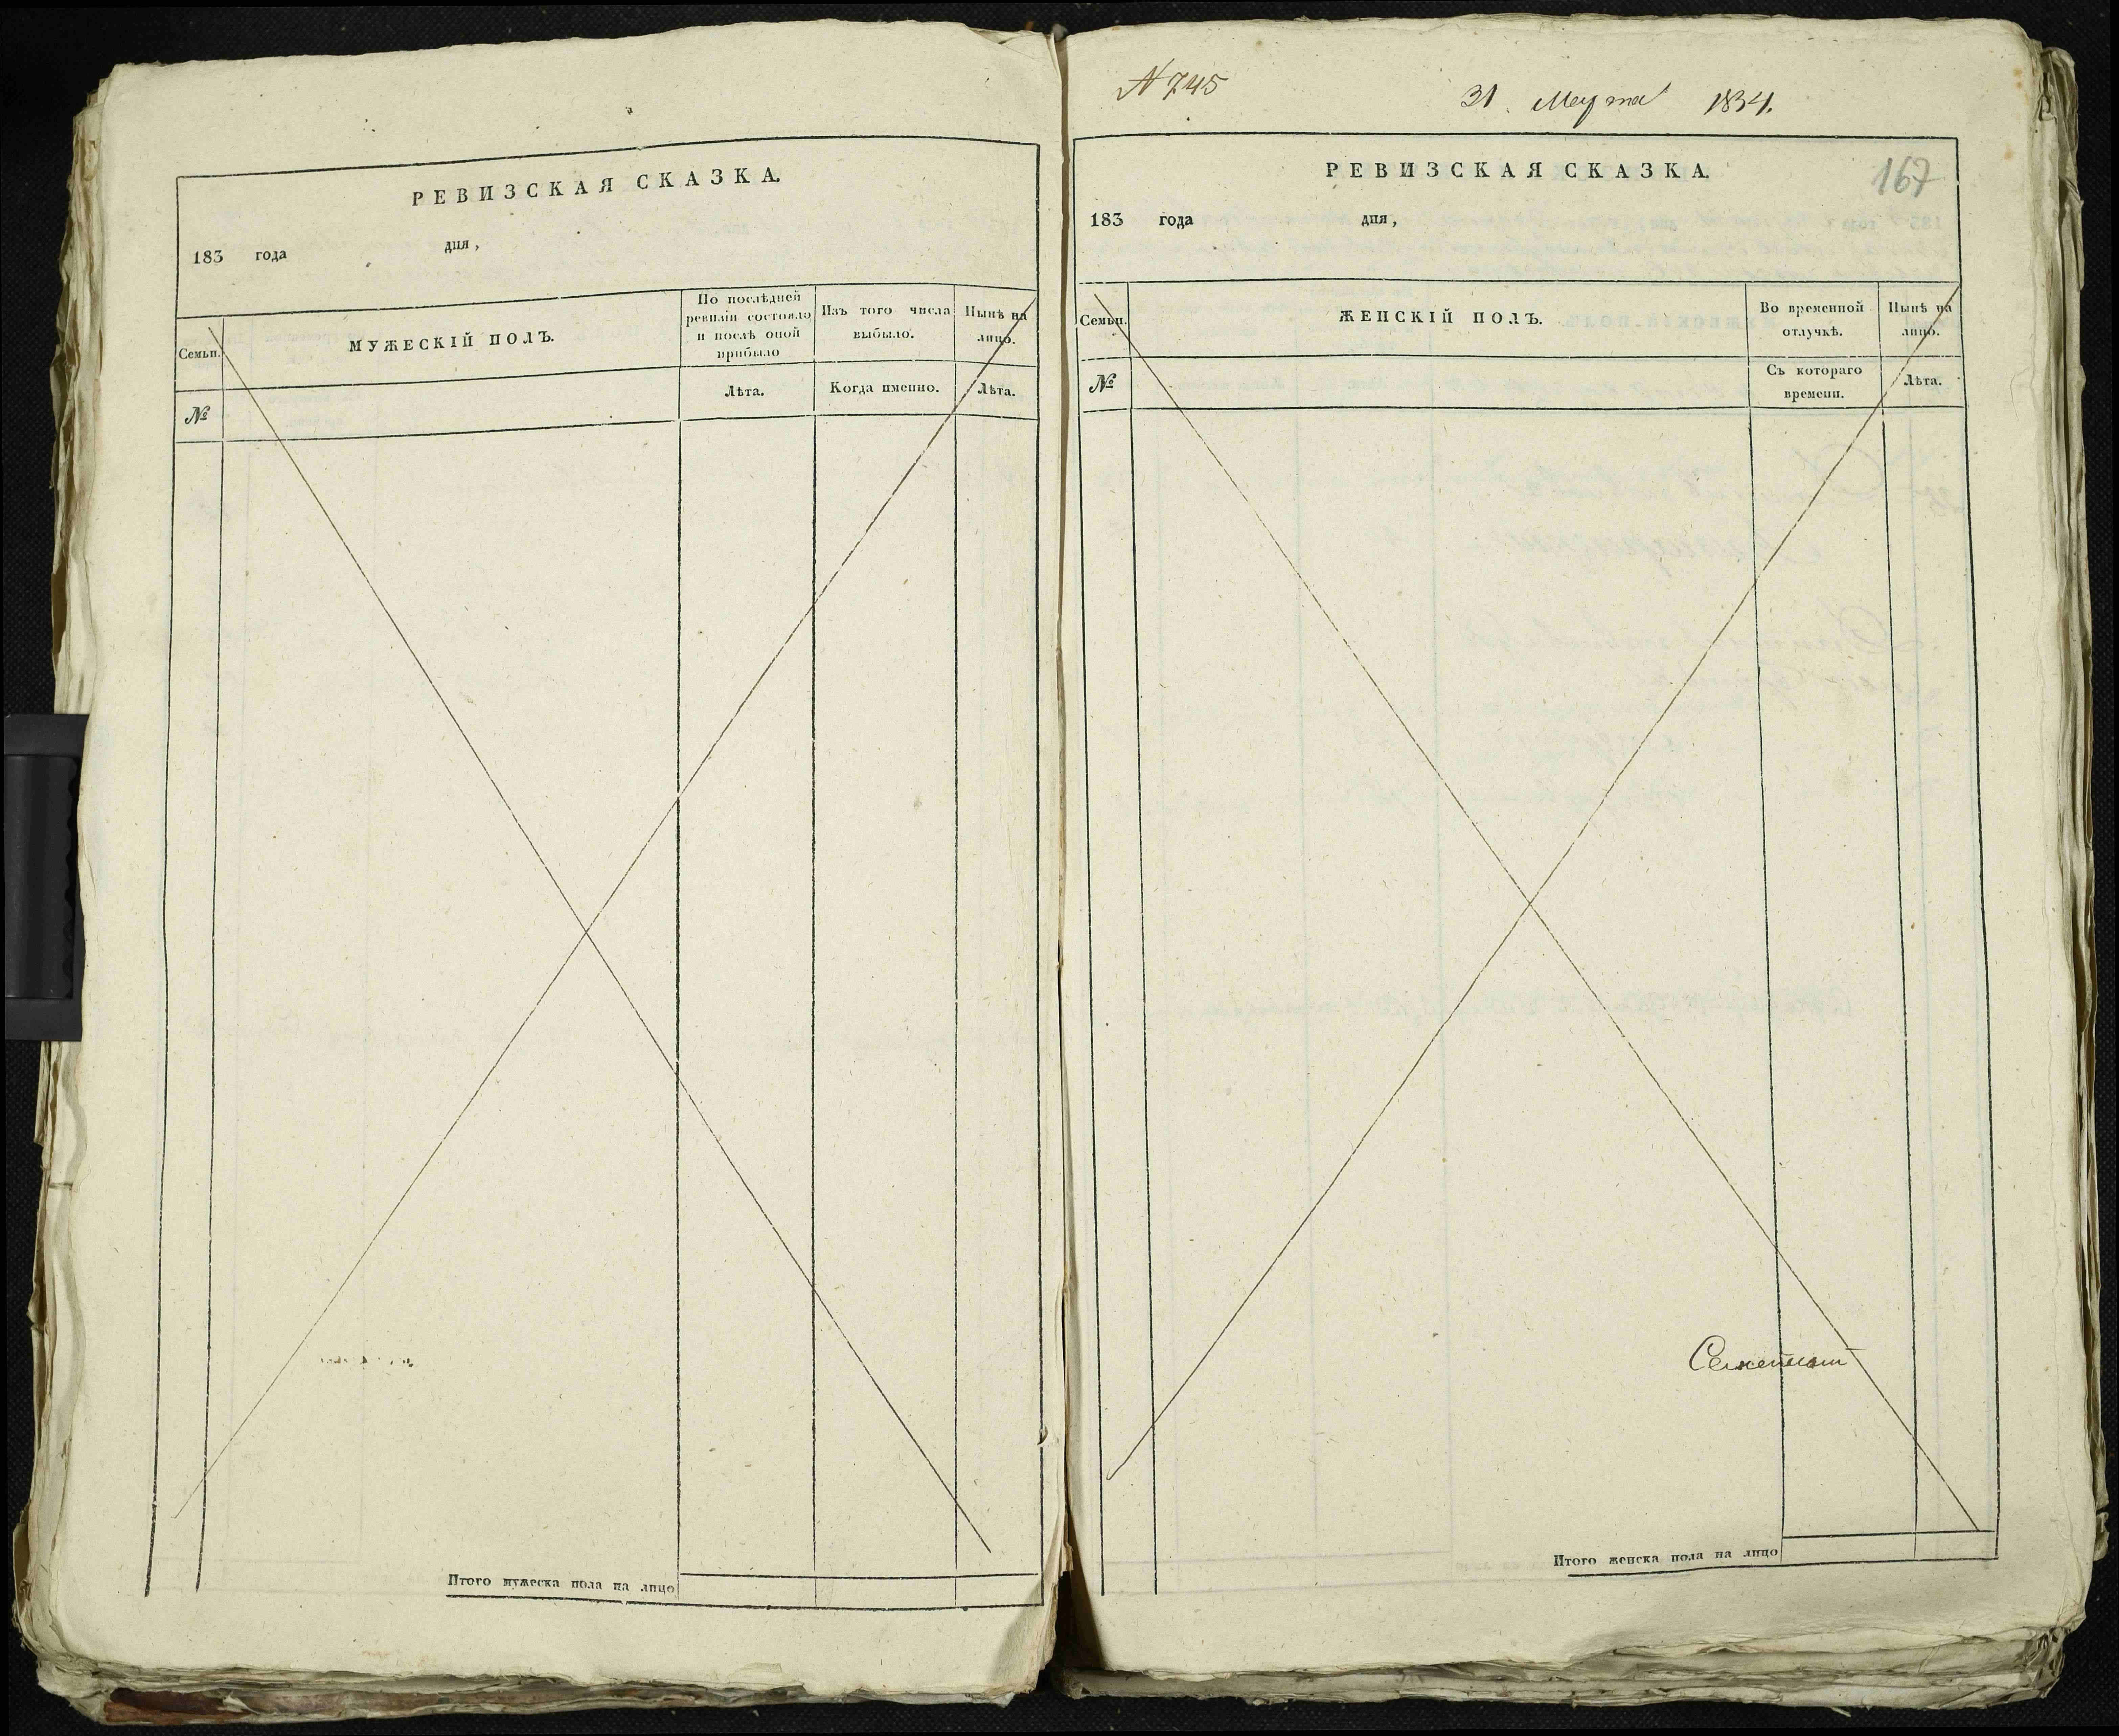 РЕВИЗСКАЯ СКАЗКА.
183 года дня,
Семьи.
МУЖЕСКІЙ ПОЛЪ.
По послѣдней ревизіи состояло и послѣ оной прибыло
Изъ того числа выбыло.
Нынѣ на лицо.
№
Лѣта.
Когда именно.
Лѣта.
Итого мужеска пола на лицо
N 745
31 Марта 1834.
167
РЕВИЗСКАЯ СКАЗКА.
183 года дня,
Семьи.
ЖЕНСКІЙ ПОЛЪ.
Во временной отлучкѣ.
Нынѣ на лицо.
№
Съ котораго времени.
Лѣта.
Итого женска пола на лицо